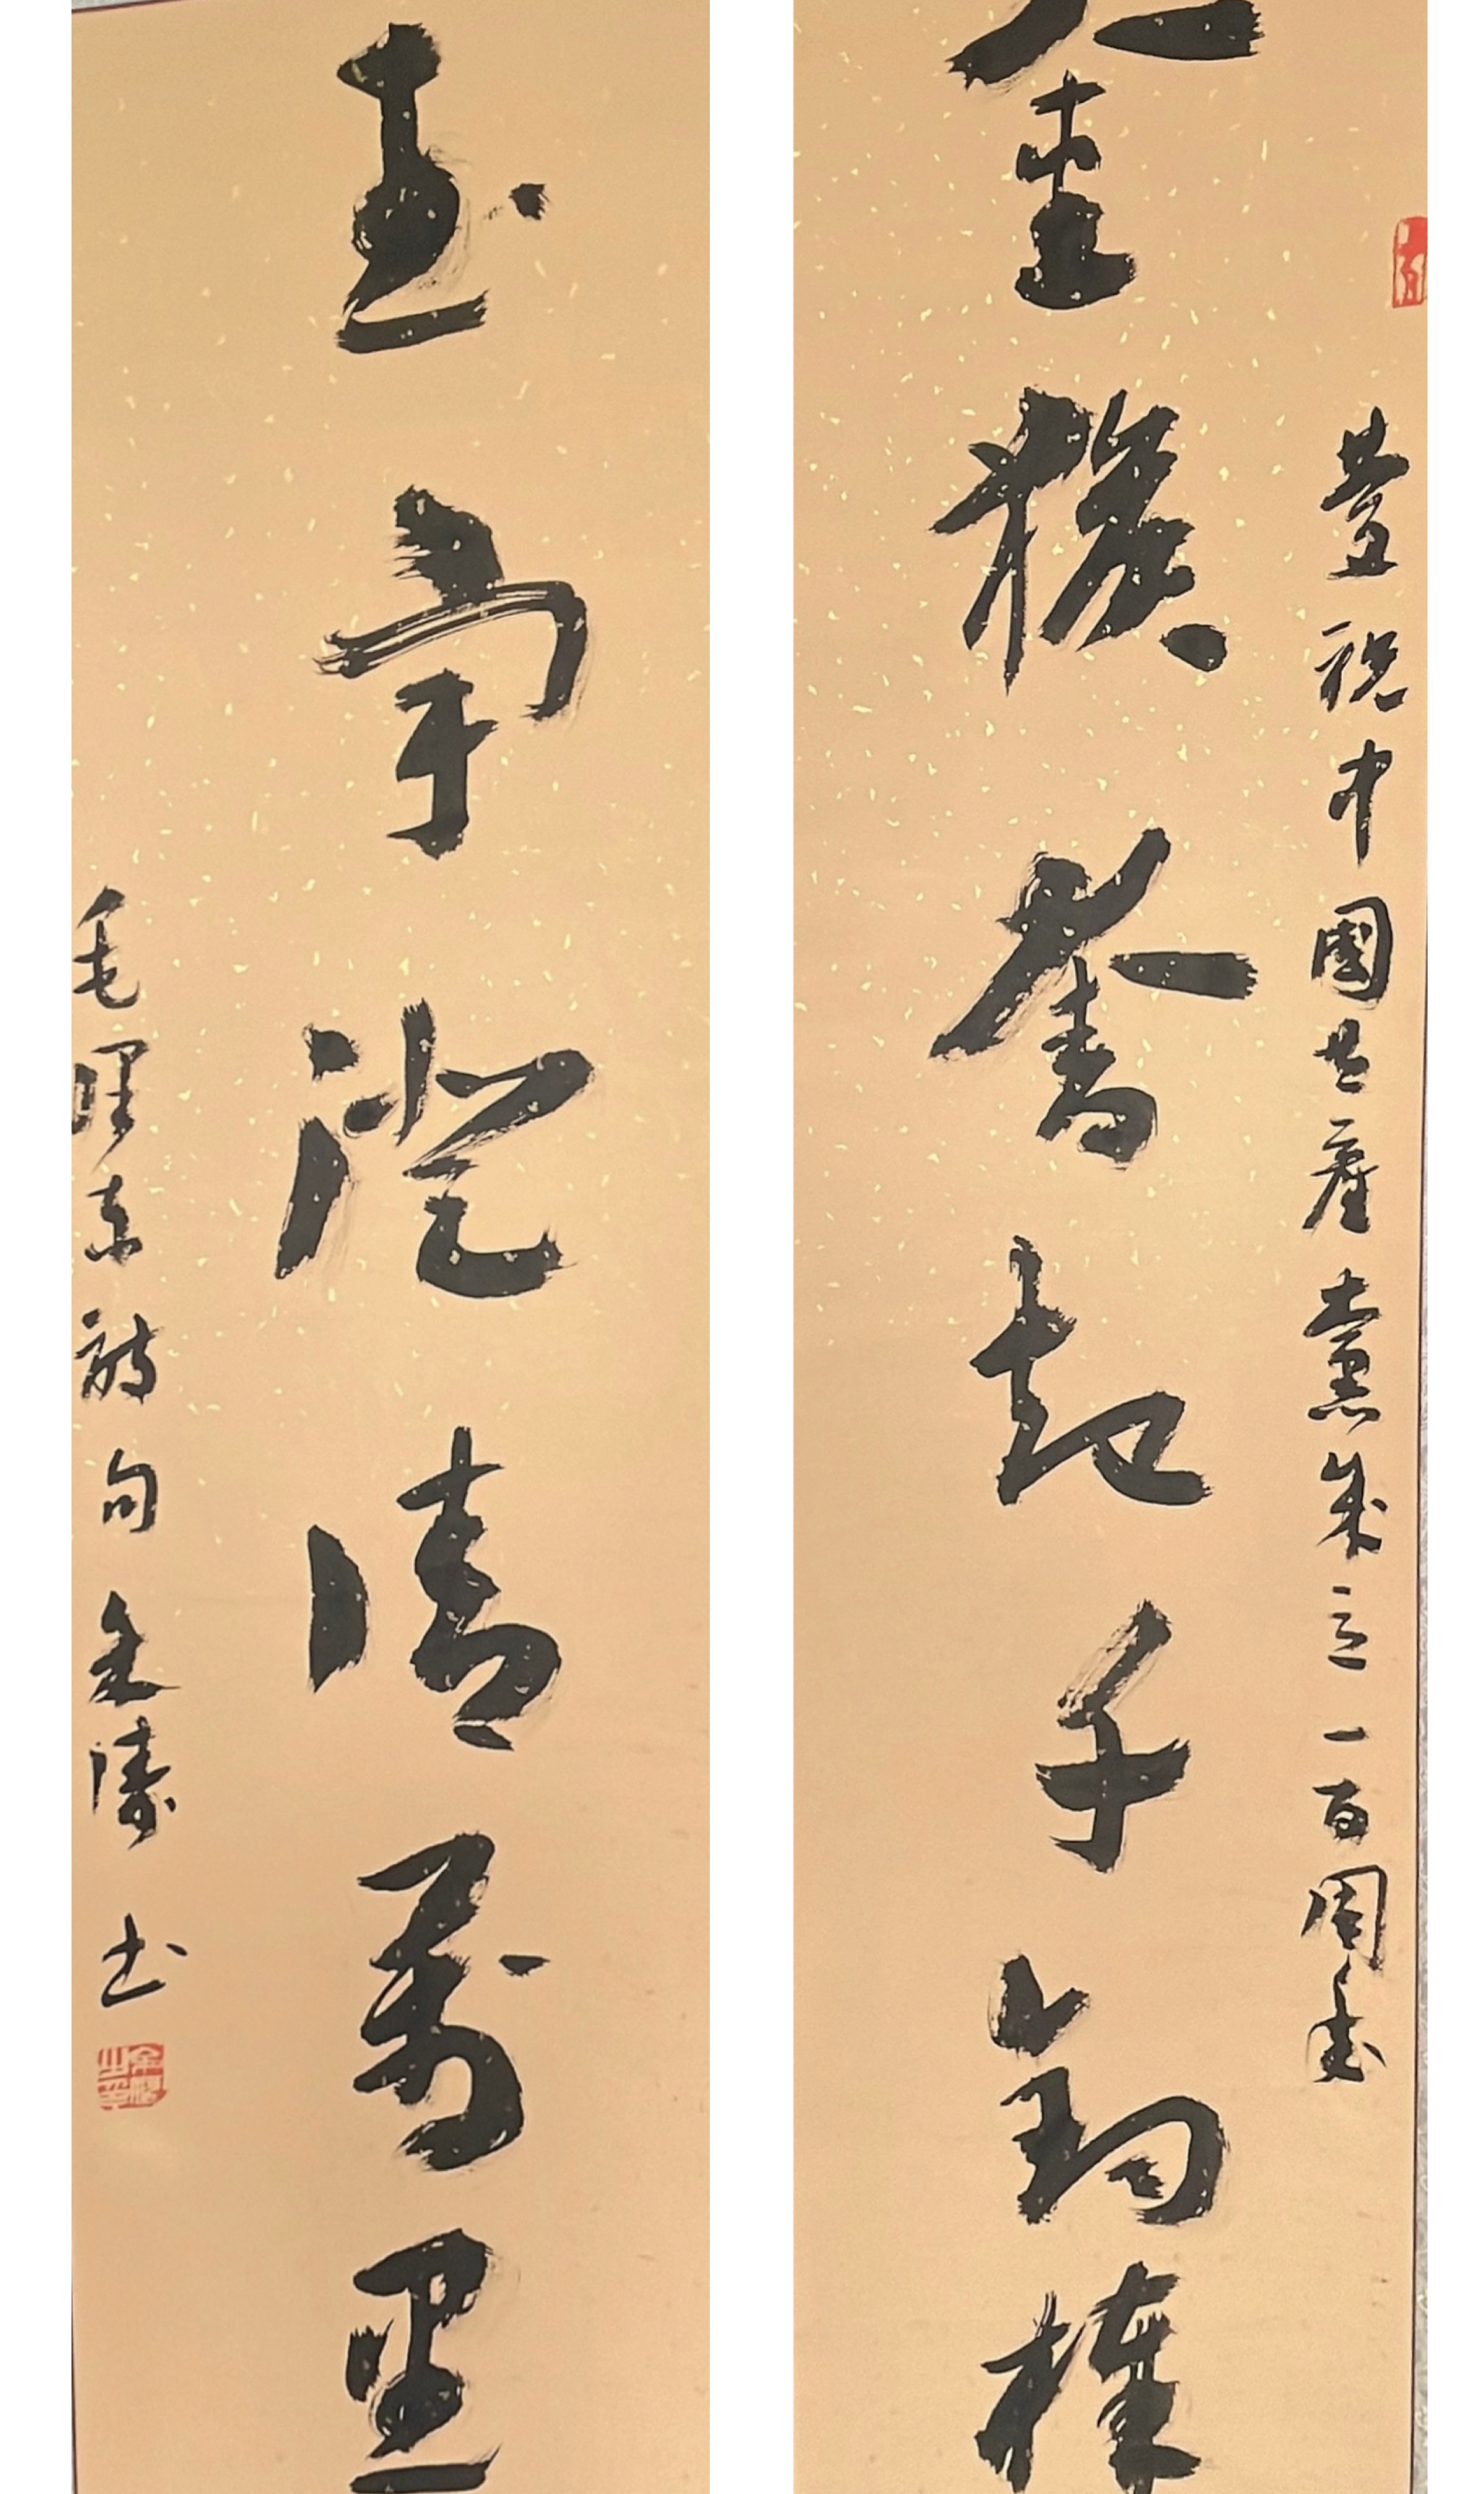 慶祝中國共產黨成立一百周年
金猴奮起千鈞棒
玉宇澄清萬里
毛澤東詩句金濤书